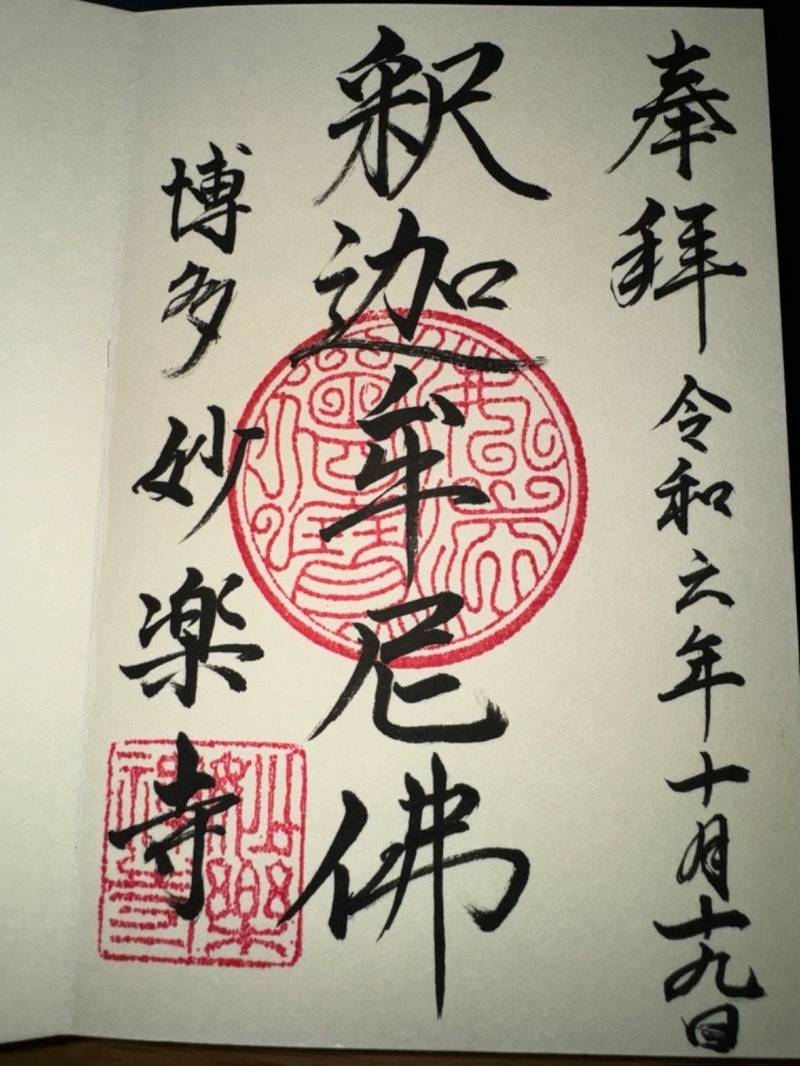 奉拝 令和六年十月十九日
釈迦牟尼佛
博多 妙楽寺